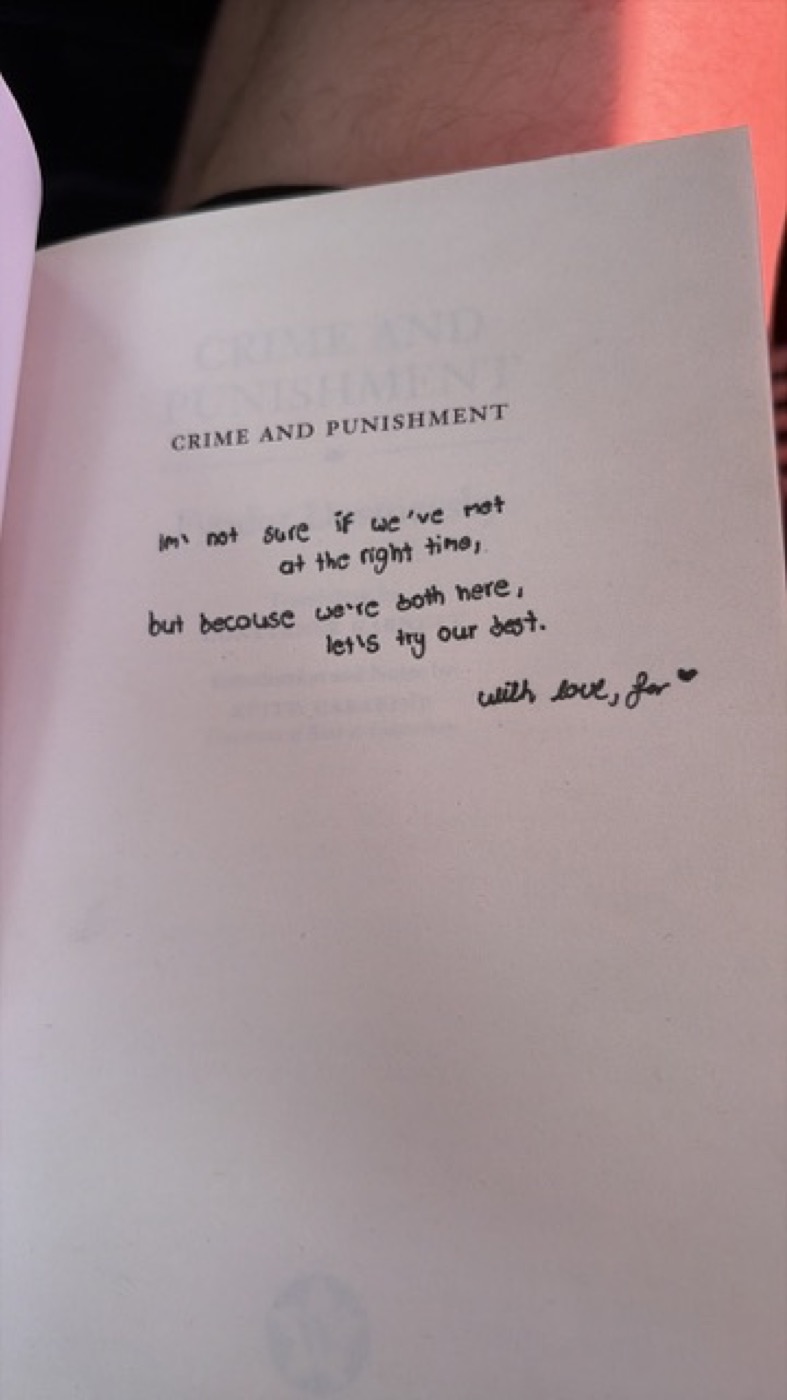 CRIME AND
PUNISHMENT
CRIME AND PUNISHMENT
Im' not sure if we've met
at the right time,
but because we're both here,
let's try our best.
with love, far ❤